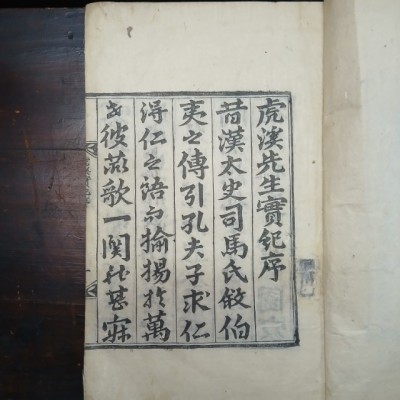 虎溪先生實紀序
昔漢太史司馬氏敘伯
夷之傳引孔夫子求仁
得仁之語而揄揚於萬
世彼薇歌一闋於甚寂